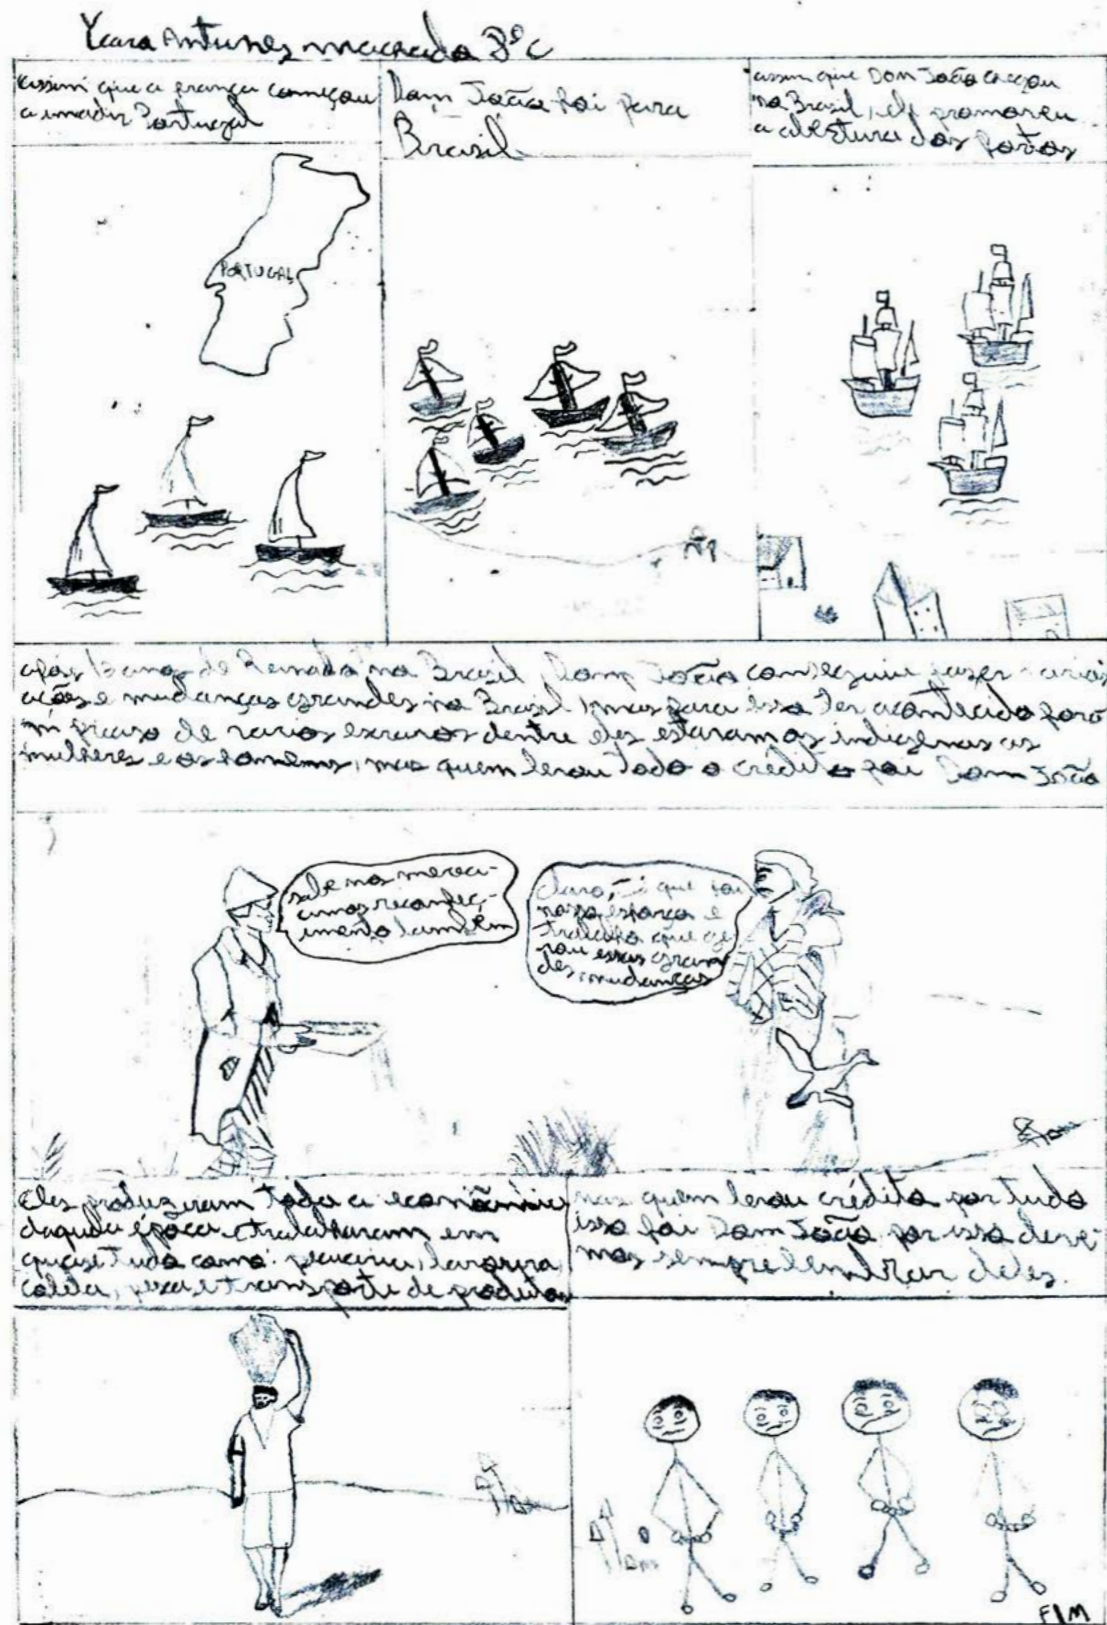 Yara Antunes machado 8º C
assim que a frança começou
a invadir Portugal
Dom João foi para
Brasil
assim que Dom João chegou
no Brasil, ele promoveu
a abertura dos portos
PORTUGAL
após 13 anos de Reinado no Brasil, Dom João conseguiu fazer varias
ações e mudanças grandes no Brasil, mas para isso ter acontecido foro
m preciso de varios escravos dentre eles estavam os indigenas as
mulheres e os homens, mas quem levou todo o crédito foi Dom João
sabe nos mereci-
amos reconheç-
imento também
claro, já que foi
nosso esforço e
trabalho que ge
rou essas gran
des mudanças
eles produziram toda a economia
daquela época e trabalharam em
quase tudo como: pecuaria, lavoura,
coleta, pesca e transporte de produtos
mas quem levou crédito por tudo
isso foi Dom João por isso deve-
mos sempre lembrar deles.
FIM